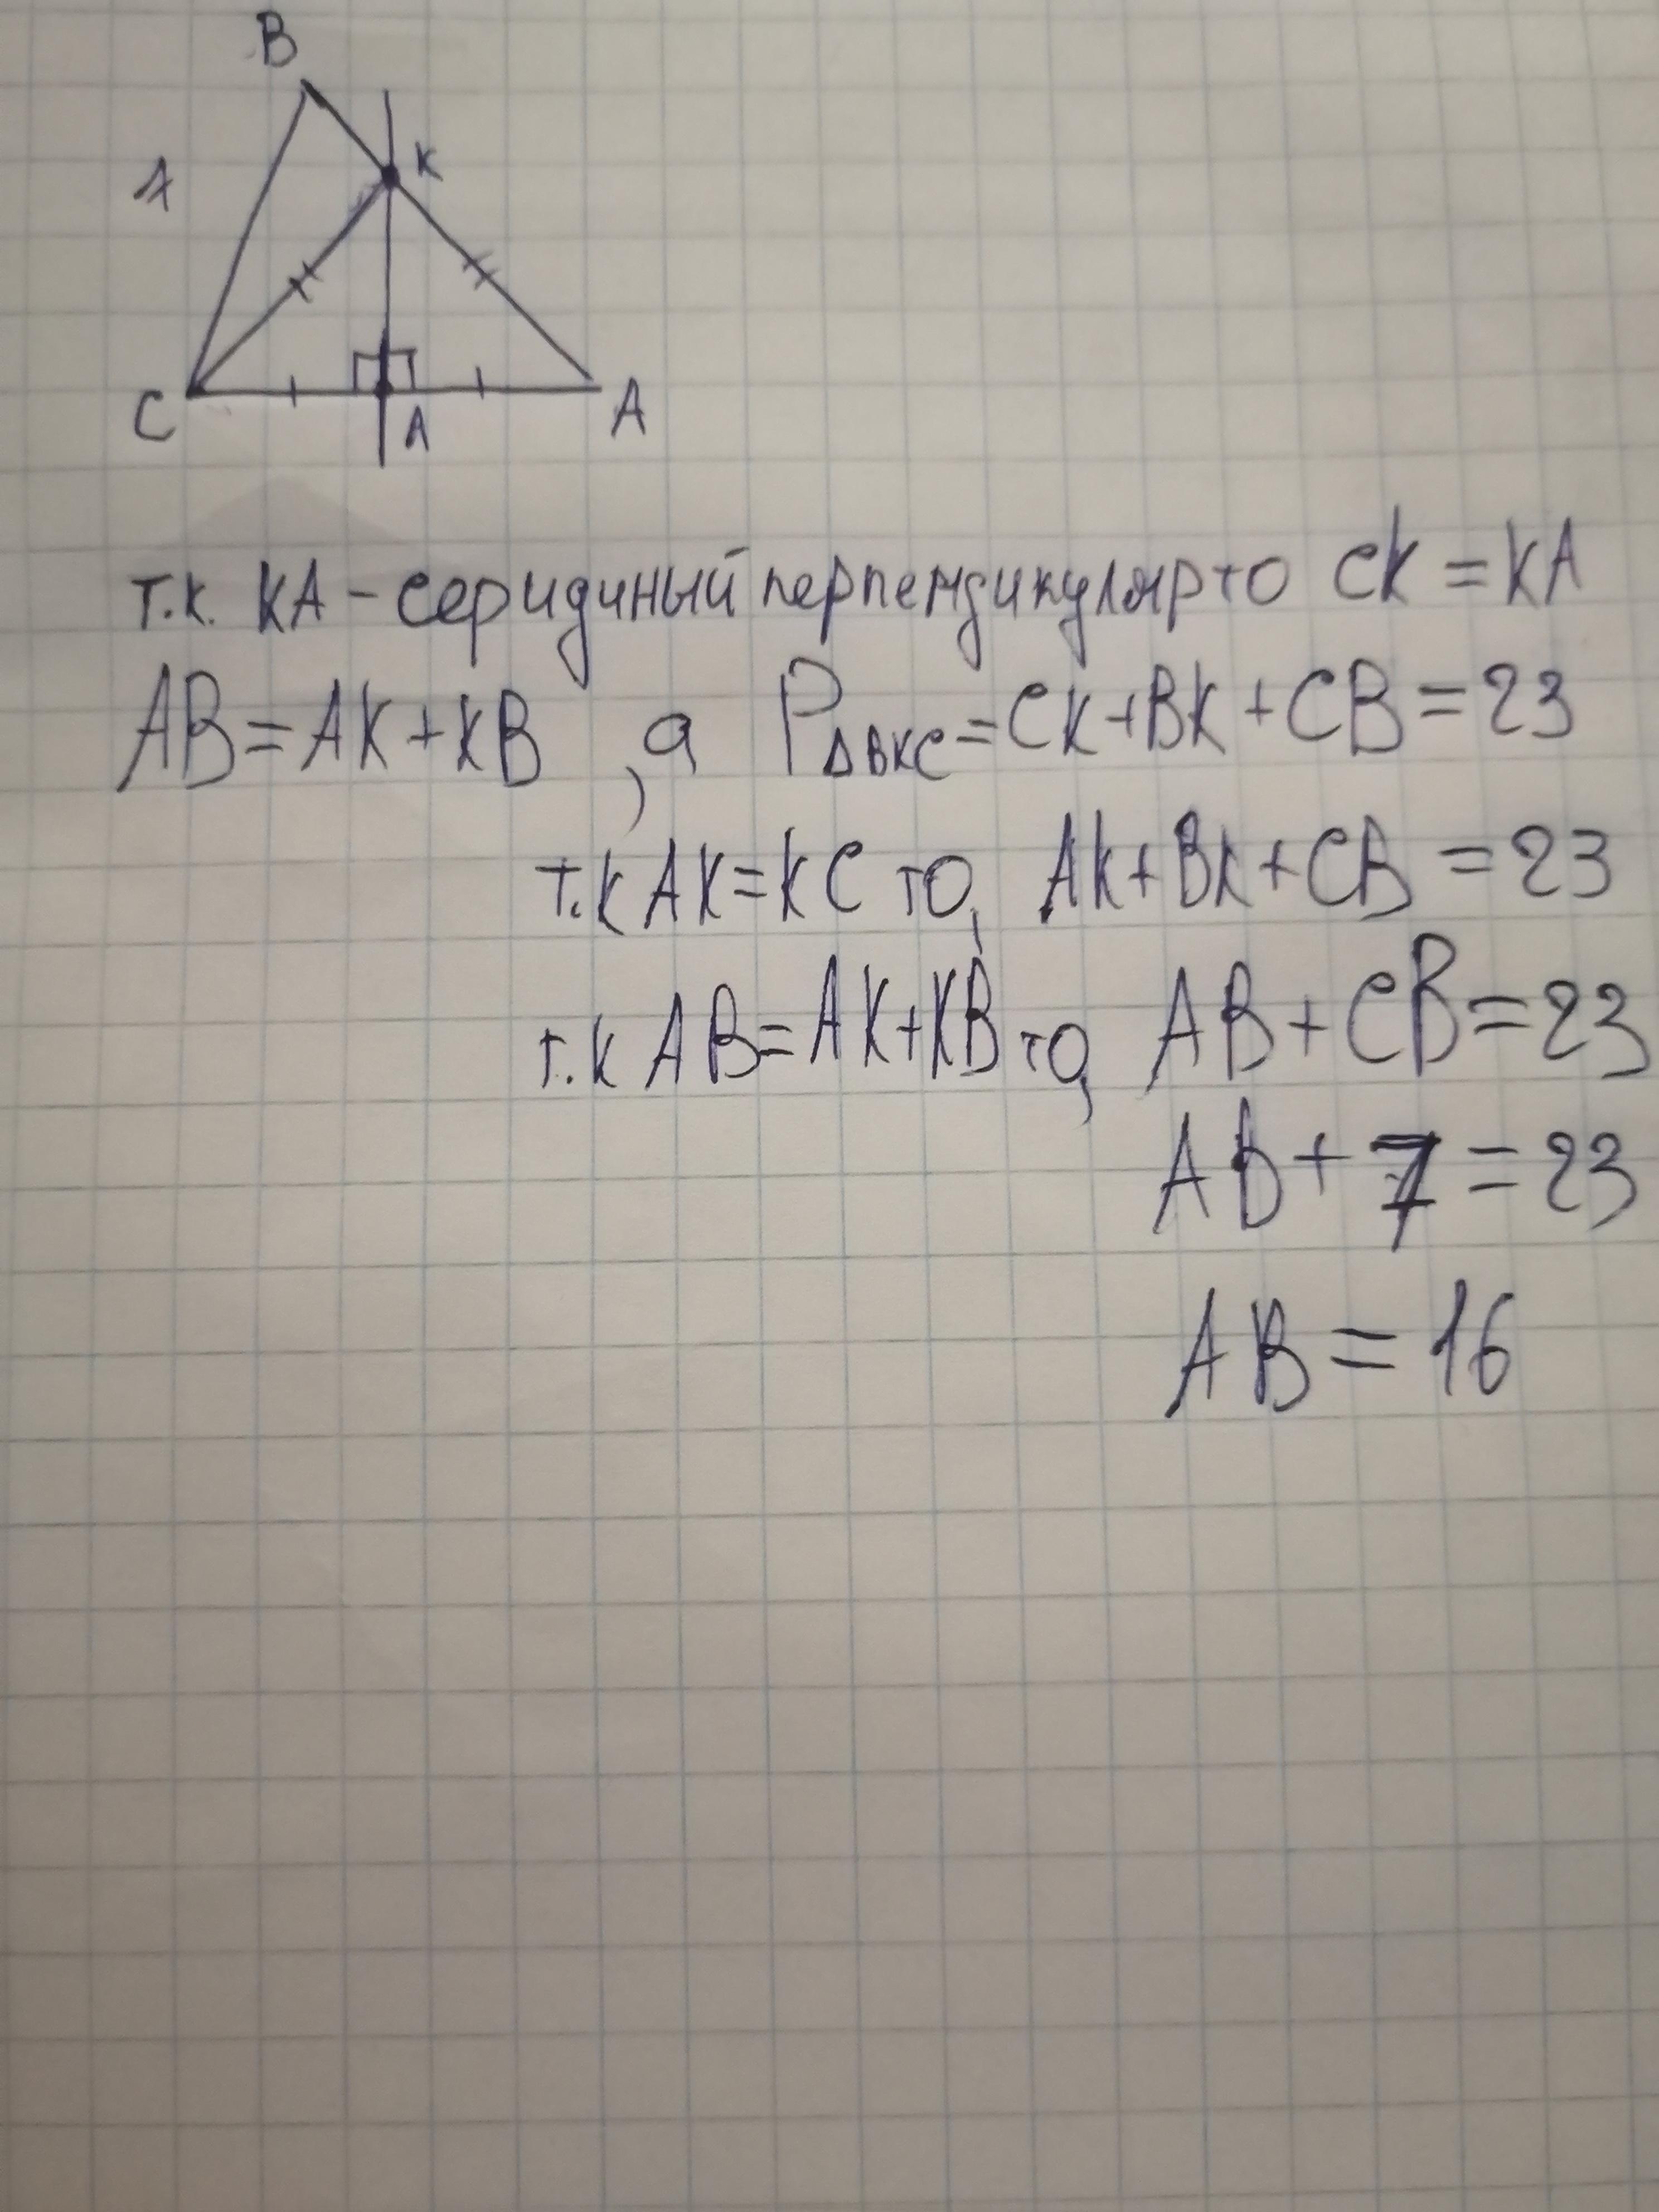 B
K
7
C
A
A
т.к. KA - серидиный перпендикуляр то CK = KA
AB = AK + KB , а P∆BKC = CK + BK + CB = 23
т.к AK = KC то, AK + BK + CB = 23
т.к AB = AK + KB то, AB + CB = 23
AB + 7 = 23
AB = 16